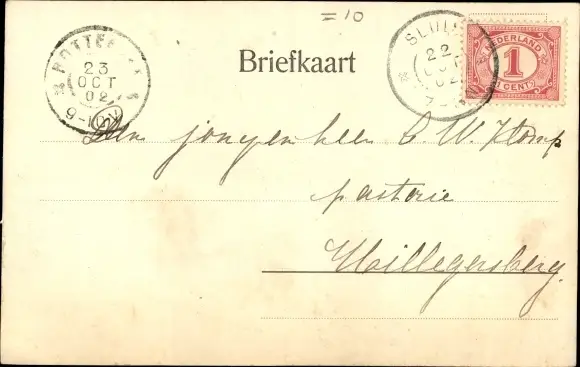 =10
ROTTE
23
OCT
02
Briefkaart
SLUI
22
OCT
02
NEDERLAND
1
CENT
Den jongenheer W.
pastorie
Hillegersberg.